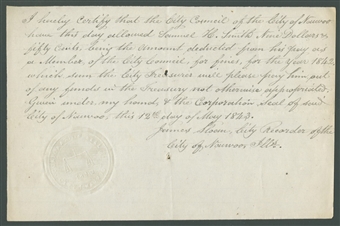 I hereby Certify that the City Council of the City of Nauvoo
have this day allowed Samuel H. Smith Nine Dollars &
fifty Cents, being the amount deducted from his pay as
a Member, of the City Council, for fines, for the Year 1842,
which sum the City Treasurer will please pay him out
of any funds in the Treasury not otherwise appropriated.
Given under my hand, & the Corporation Seal of said
City of Nauvoo, this 12th day of May 1843.
James Sloan, City Recorder of the
City of Nauvoo Ills.